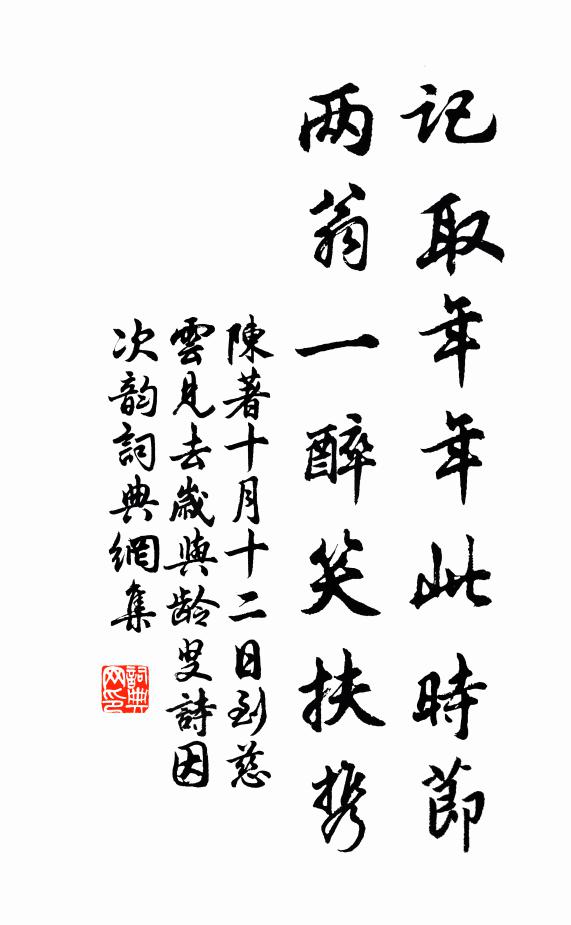 记取年年此時節
两翁一醉笑扶携
陳著十月十二日到慈
雲見去歲與龄叟詩因
次韵詞典網集
詞典
网印